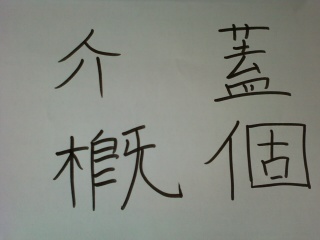 介 蓋
概 個